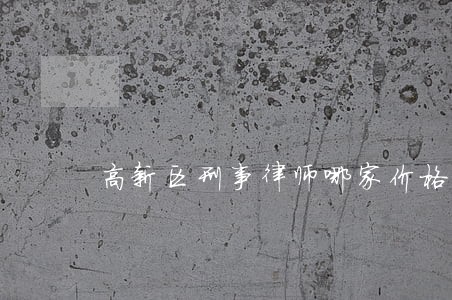 高新区刑事律师哪家价格